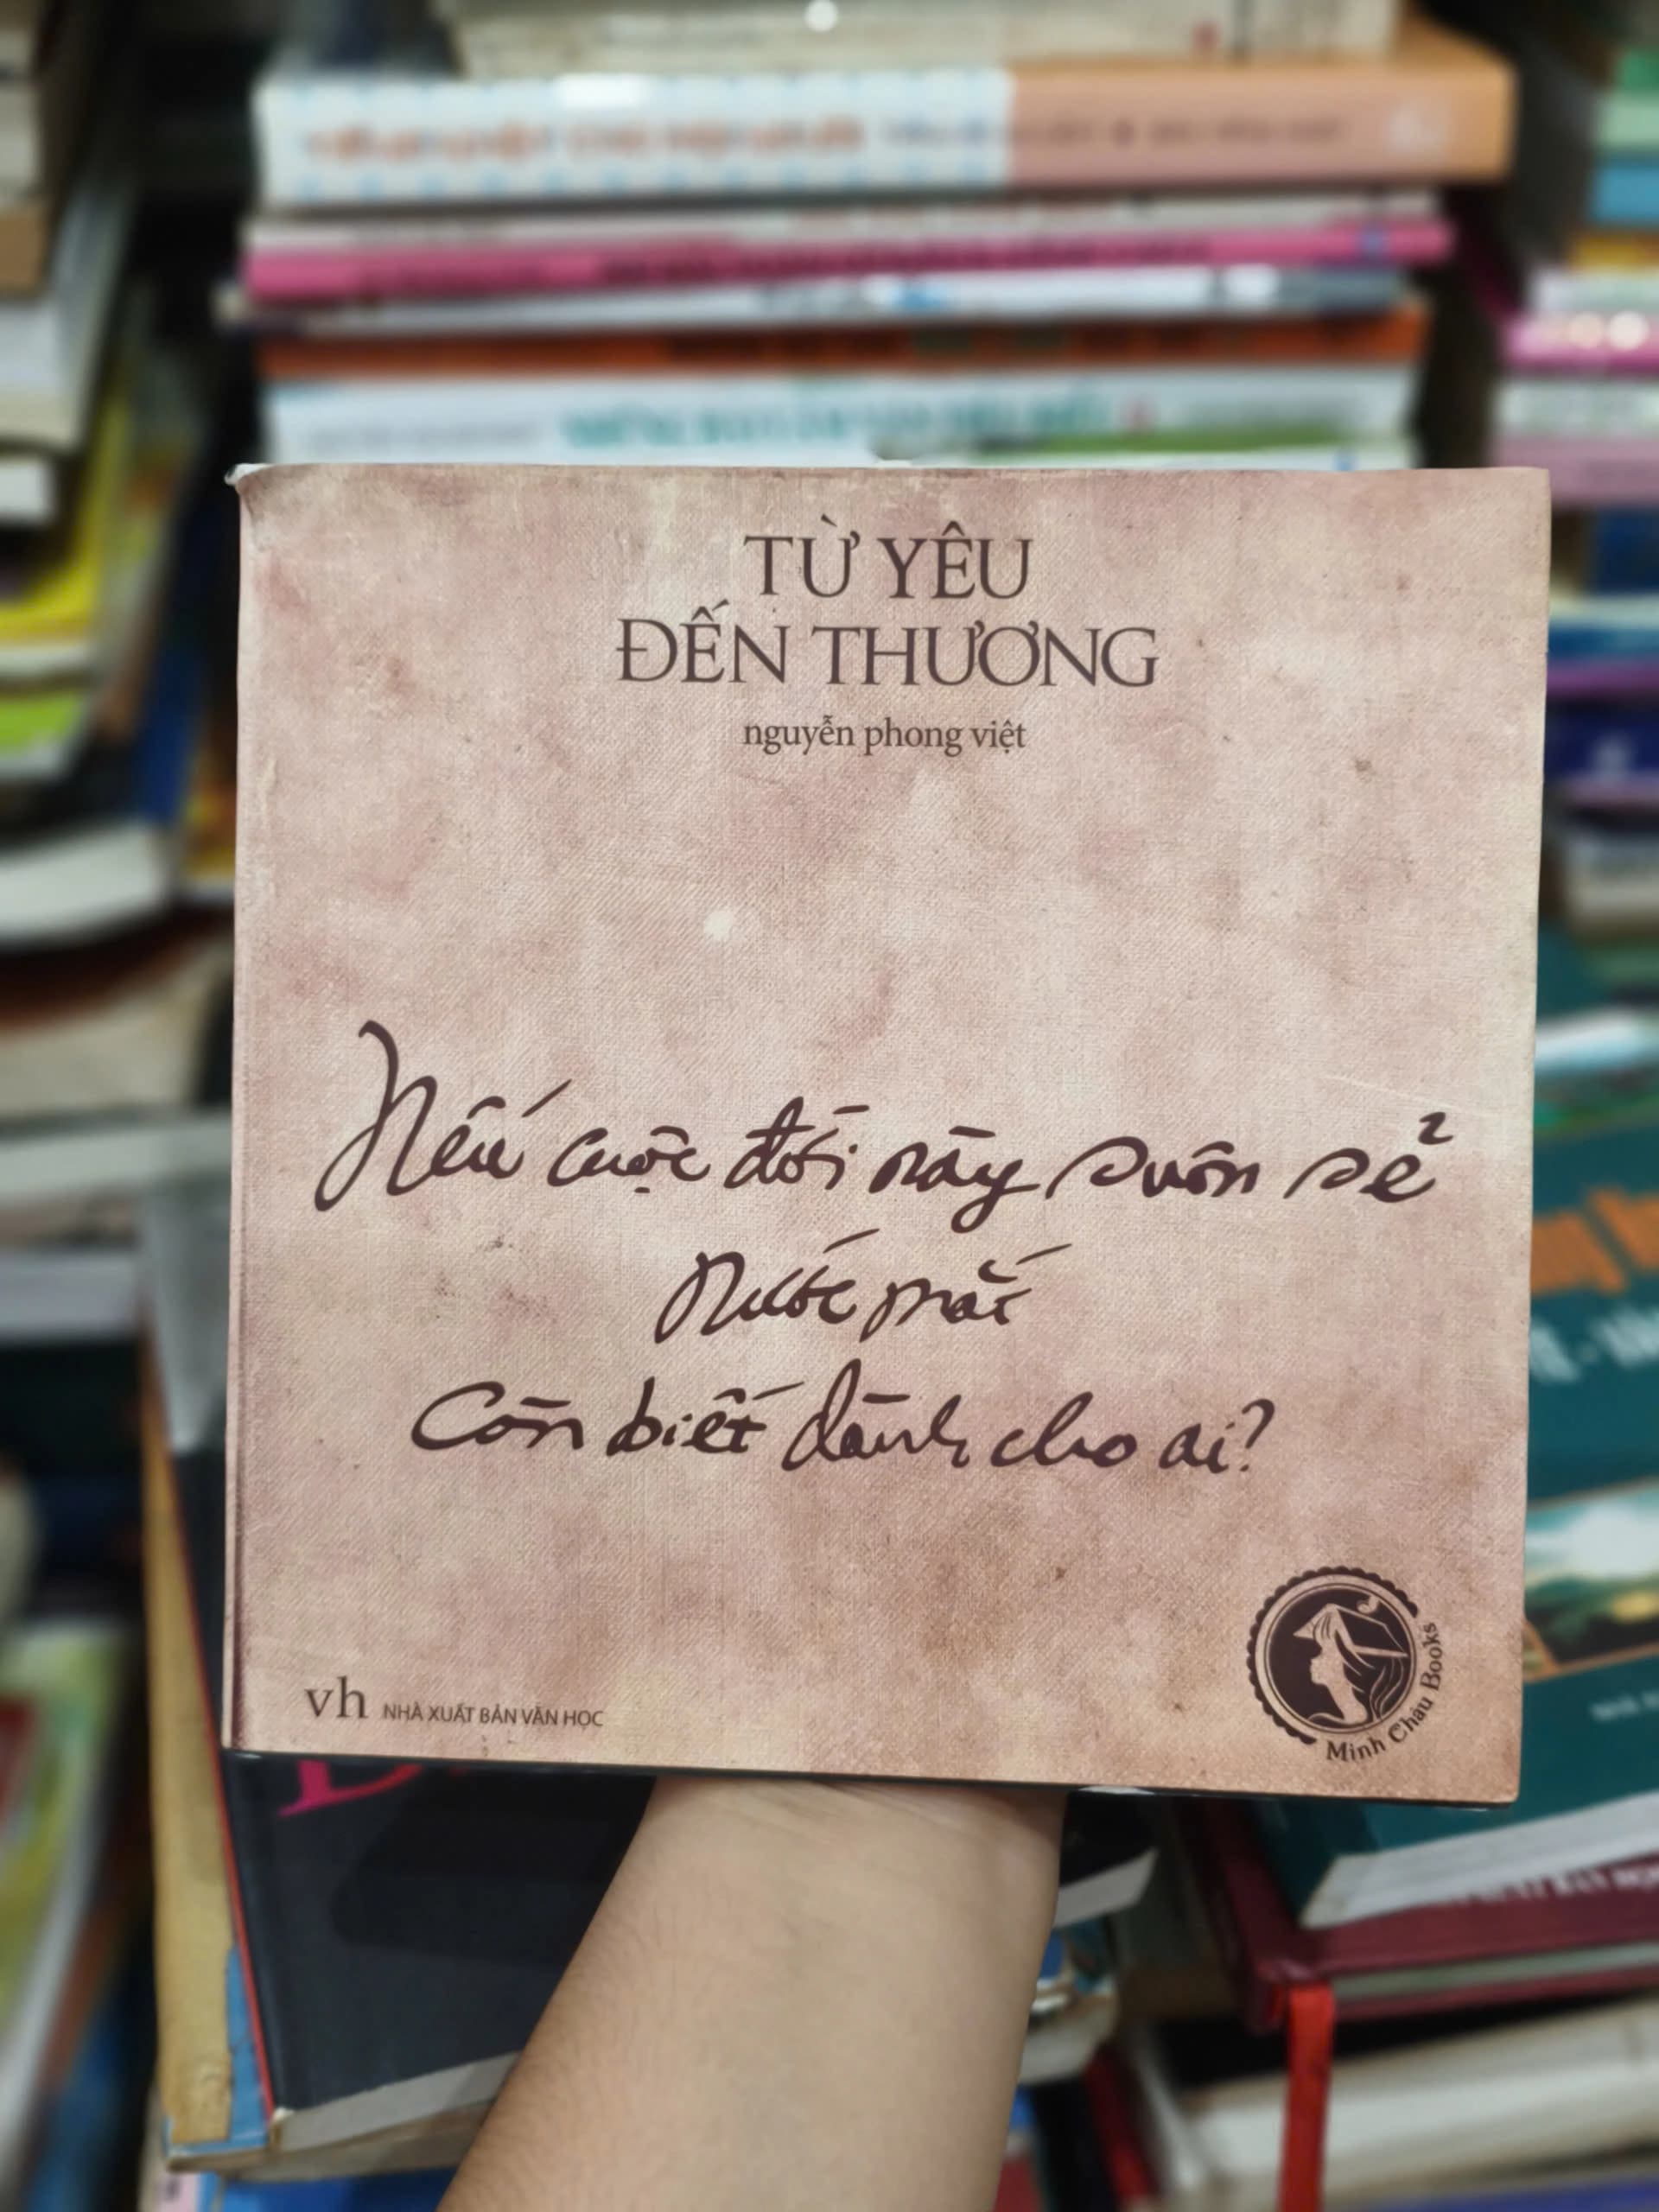 TỪ YÊU
ĐẾN THƯƠNG
nguyễn phong việt
Nếu cuộc đời này suôn sẻ
Nước mắt
Còn biết dành cho ai?
vh NHÀ XUẤT BẢN VĂN HỌC
Minh Châu Books